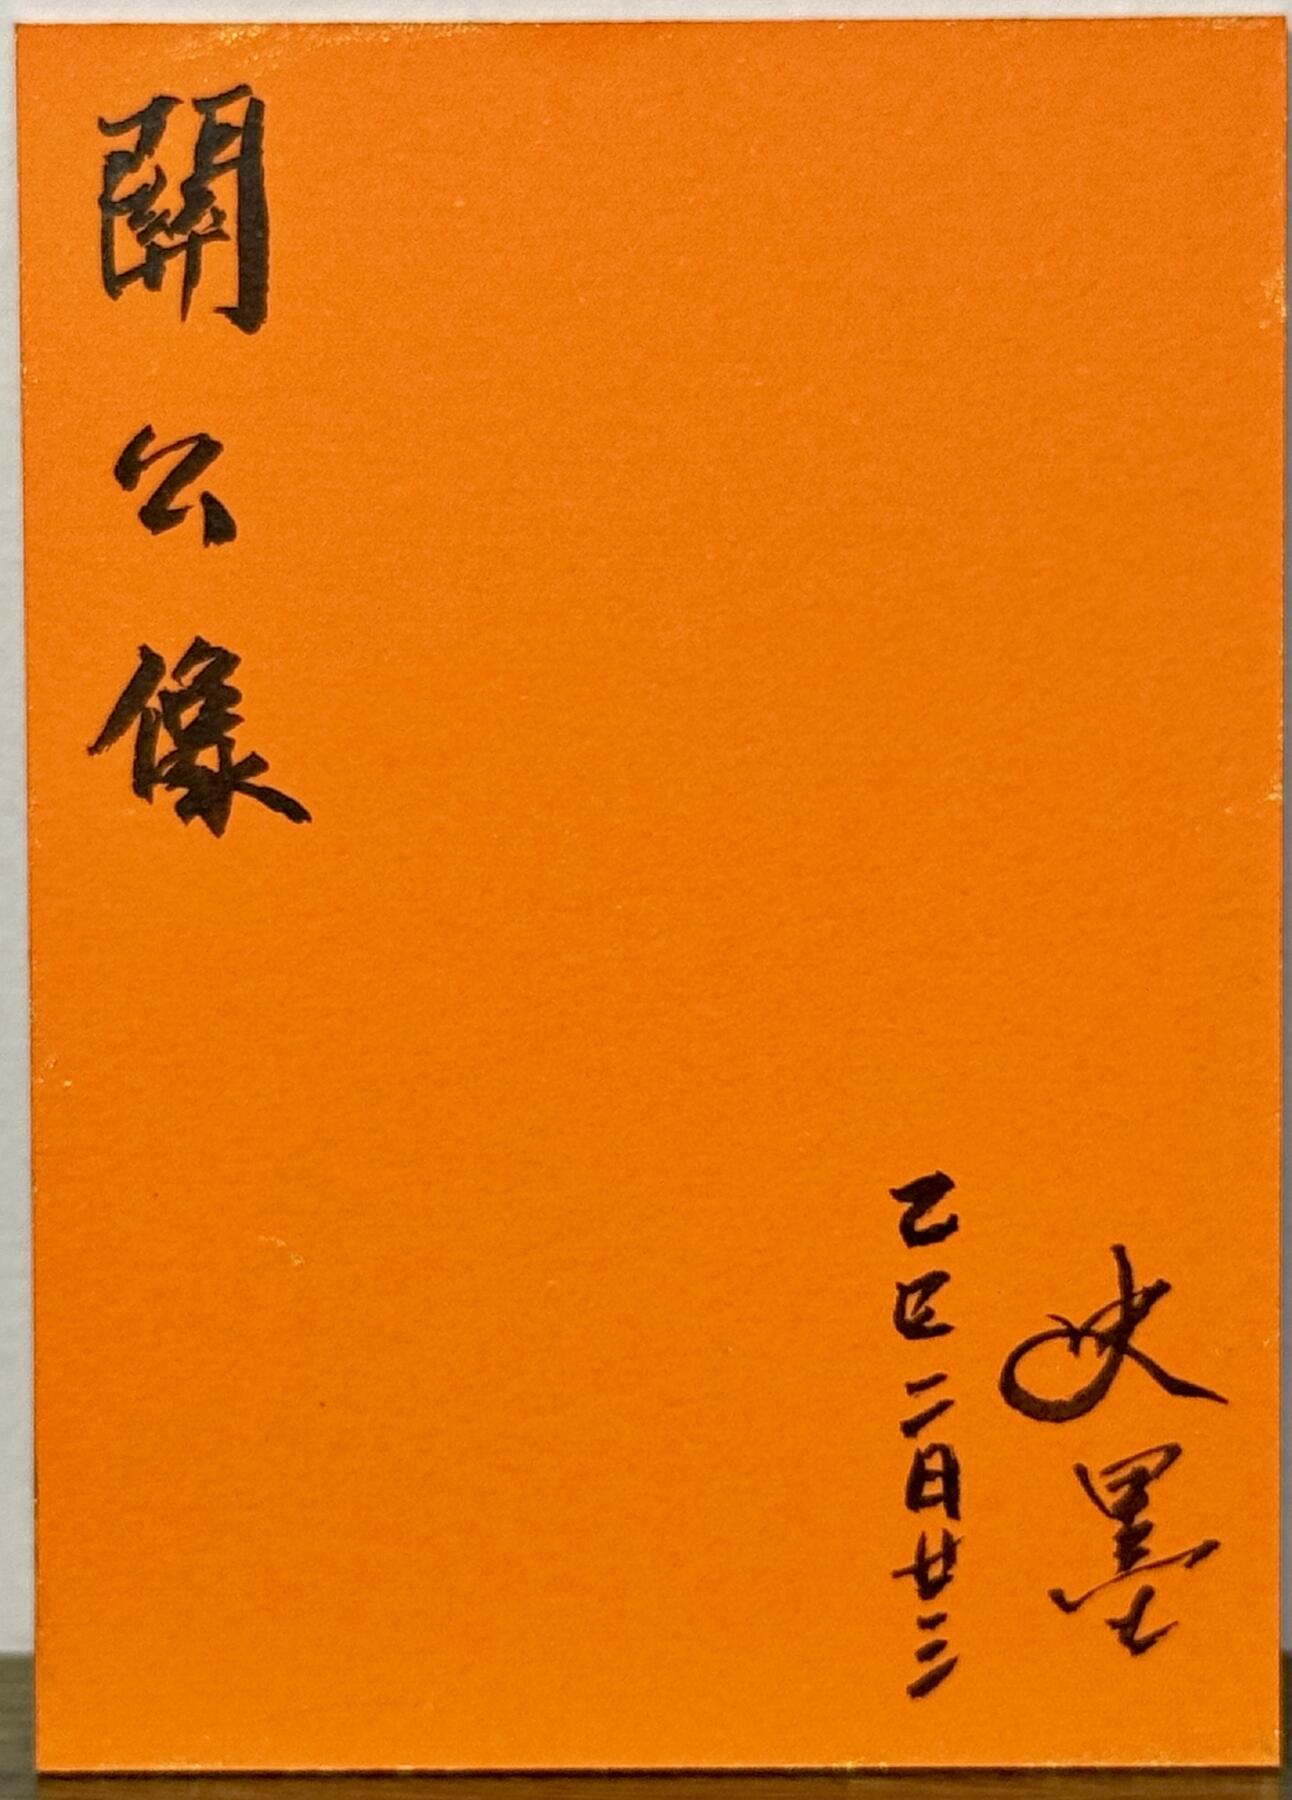 關公像
史墨
乙巳二月廿三